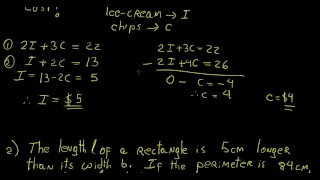 COST?
ICE-CREAM → I
CHIPS → C
① 2I + 3C = 22
② I + 2C = 13
I = 13 - 2C = 5
∴ I = $5
2I + 3C = 22
- 2I + 4C = 26
0 - C = -4
∴ C = 4
C = $4
2) The length l of a rectangle is 5cm longer
than its width b. If the perimeter is 84cm,